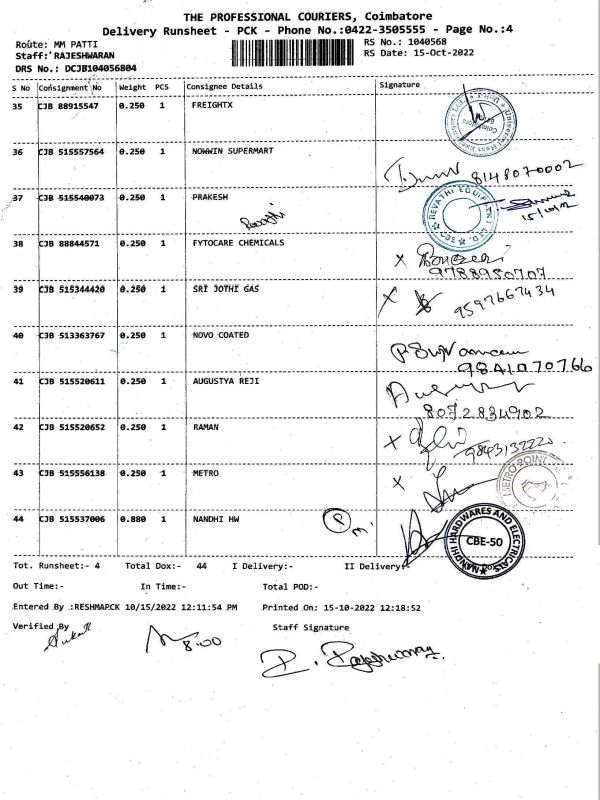 THE PROFESSIONAL COURIERS, Coimbatore
Delivery Runsheet - PCK - Phone No.:0422-3505555 - Page No.:4
Route: MM PATTI
RS No.: 1040568
Staff: RAJESHWARAN
RS Date: 15-Oct-2022
DRS No.: DCJB104056804
S No Consignment No Weight PCS Consignee Details Signature
35 CJB 88915547 0.250 1 FREIGHTX
36 CJB 515557564 0.250 1 NOWWIN SUPERMART
8148070002
37 CJB 515540073 0.250 1 PRAKESH
REVATHI EQUIPMENT LTD. CBE
38 CJB 88844571 0.250 1 FYTOCARE CHEMICALS
9788950707
39 CJB 515344420 0.250 1 SRI JOTHI GAS
9597667434
40 CJB 513363767 0.250 1 NOVO COATED
9841070766
41 CJB 515520611 0.250 1 AUGUSTYA REJI
8072834902
42 CJB 515520652 0.250 1 RAMAN
9843132220
43 CJB 515556138 0.250 1 METRO
METRO POINT
44 CJB 515537006 0.880 1 NANDHI HW
NANDHI HARDWARES AND ELECTRICALS
CBE-50
Tot. Runsheet:- 4 Total Dox:- 44 I Delivery:- II Delivery:-
Out Time:- In Time:- Total POD:-
Entered By :RESHMAPCK 10/15/2022 12:11:54 PM Printed On: 15-10-2022 12:18:52
Verified By Staff Signature
8:00